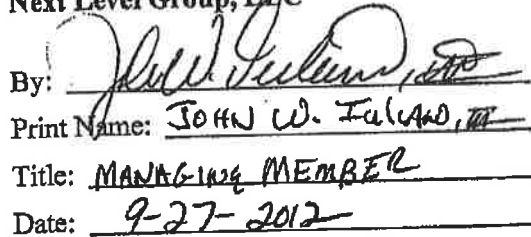 Next Level Group, LLC
By:
Print Name: JOHN W. III
Title: MANAGING MEMBER
Date: 9-27-2012